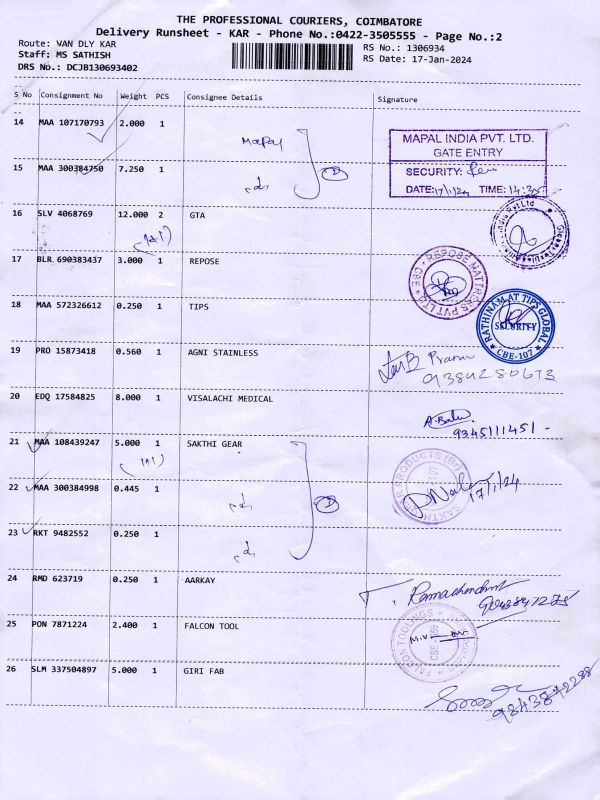 THE PROFESSIONAL COURIERS, COIMBATORE
Delivery Runsheet - KAR - Phone No.:0422-3505555 - Page No.:2
Route: VAN DLY KAR
Staff: MS SATHISH
DRS No.: DCJB130693402
RS No.: 1306934
RS Date: 17-Jan-2024
S No Consignment No Weight PCS Consignee Details Signature
14 MAA 107170793 2.000 1 Mapal
MAPAL INDIA PVT. LTD.
GATE ENTRY
15 MAA 300384750 7.250 1
SECURITY:
DATE: 17/1/24 TIME: 14:35
16 SLV 4068769 12.000 2 GTA
(1+1)
17 BLR 690383437 3.000 1 REPOSE
REPOSE MATTRESS PVT LTD
CBE
18 MAA 572326612 0.250 1 TIPS
RATHINAM AT TIPS GLOBAL
SECURITY
CBE-107
19 PRO 15873418 0.560 1 AGNI STAINLESS
9384280673
20 EDQ 17584825 8.000 1 VISALACHI MEDICAL
A. Balu
9345111451 -
21 MAA 108439247 5.000 1 SAKTHI GEAR
(1+1)
SAKTHI GEAR PRODUCTS
22 MAA 300384998 0.445 1
17/1/24
23 RKT 9482552 0.250 1
24 RMD 623719 0.250 1 AARKAY
T. Ramachandran
25 PON 7871224 2.400 1 FALCON TOOL
FALCON TOOLINGS
26 SLM 337504897 5.000 1 GIRI FAB
9843872288